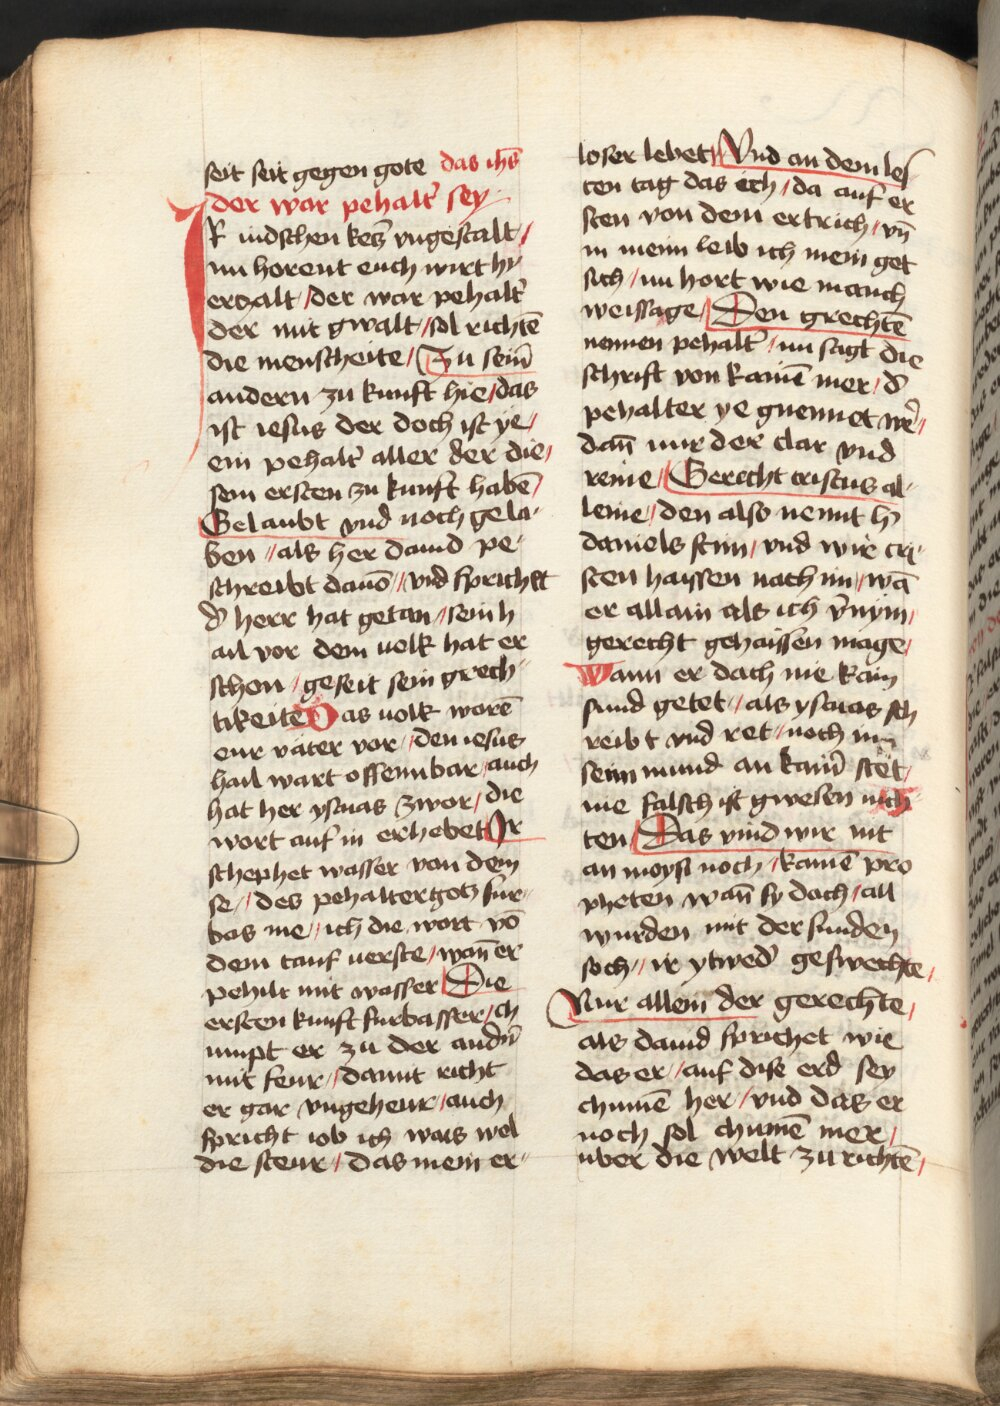 seit seit gegen gote das ihs̄
der war pehalt̄ sey
IR iudschen keȥ̄ vngestalt /
nu horent euch wirt hy
erczalt / der war pehalt̄
der mit gwalt / sol richtē
die menscheite / Zu sein̄
andern zu kunft hie / das
ist iesus der doch ist ye /
ein pehalt̄ aller der die /
sem ersten zu kunft habē /
Gelaubt vnd noch gela-
ben // als her dauid pe-
schreibt dauō // vnd sprichet
d̄ herr hat getan // sein h
ail vor dem volk hat er
schon / geseit sein grech-
tikeite Das volk warē
eur väter vor // den iesus
hail wart offennbar / auch
hat her ysaias zwor / die
wort auf in erhebet / Ir
schephet wasser von dem
se // des pehalter gotz fur-
bas me // ich die wort vō
dem tauf verste / wan̄ er
pehilt mit wasser / Die
ersten kunft furbasser / ch
umpt er zu der andn̄
mit feur / damit richt
er gar vngeheur / auch
spricht iob ich wais wol
die steur / das mein er-
loser lebet / Vnd an dem les
ten tag das ich / da auf er
sten von dem ertrich / vn̄
in meim leib ich mein got
sich / nu hort wie manch
weissage / Den grechtē
nennen pehalt̄ / nu sagt die
schrift von kainē mer / d̄
pehalter ye gnennet wr̄ /
dan̄ nur der clar vnd
reine / Gerecht cristus al-
leine / den also nennt h
daniels stim / vnd wir cri-
sten haissen nach im / wā
er allain als ich v̄nym /
gerecht gehaissen mage /
Wann er doch nie kain
sund getet // als ysaias sch
reibt vnd ret / noch in
seim mund an kain̄ stet /
nie falsch ist gwesen nich
ten / Das vind wir nit
an moysi noch / kainē pro
pheten wan̄ sy doch / all
wurden mit der sunden
soch // ir ytwed̄ geswechte /
Nur allein der gerechte /
als dauid sprichet wie
das er / auf dise erd sey
chumē her / vnd das er
noch sol chumē mer /
vber die welt zu richtē /